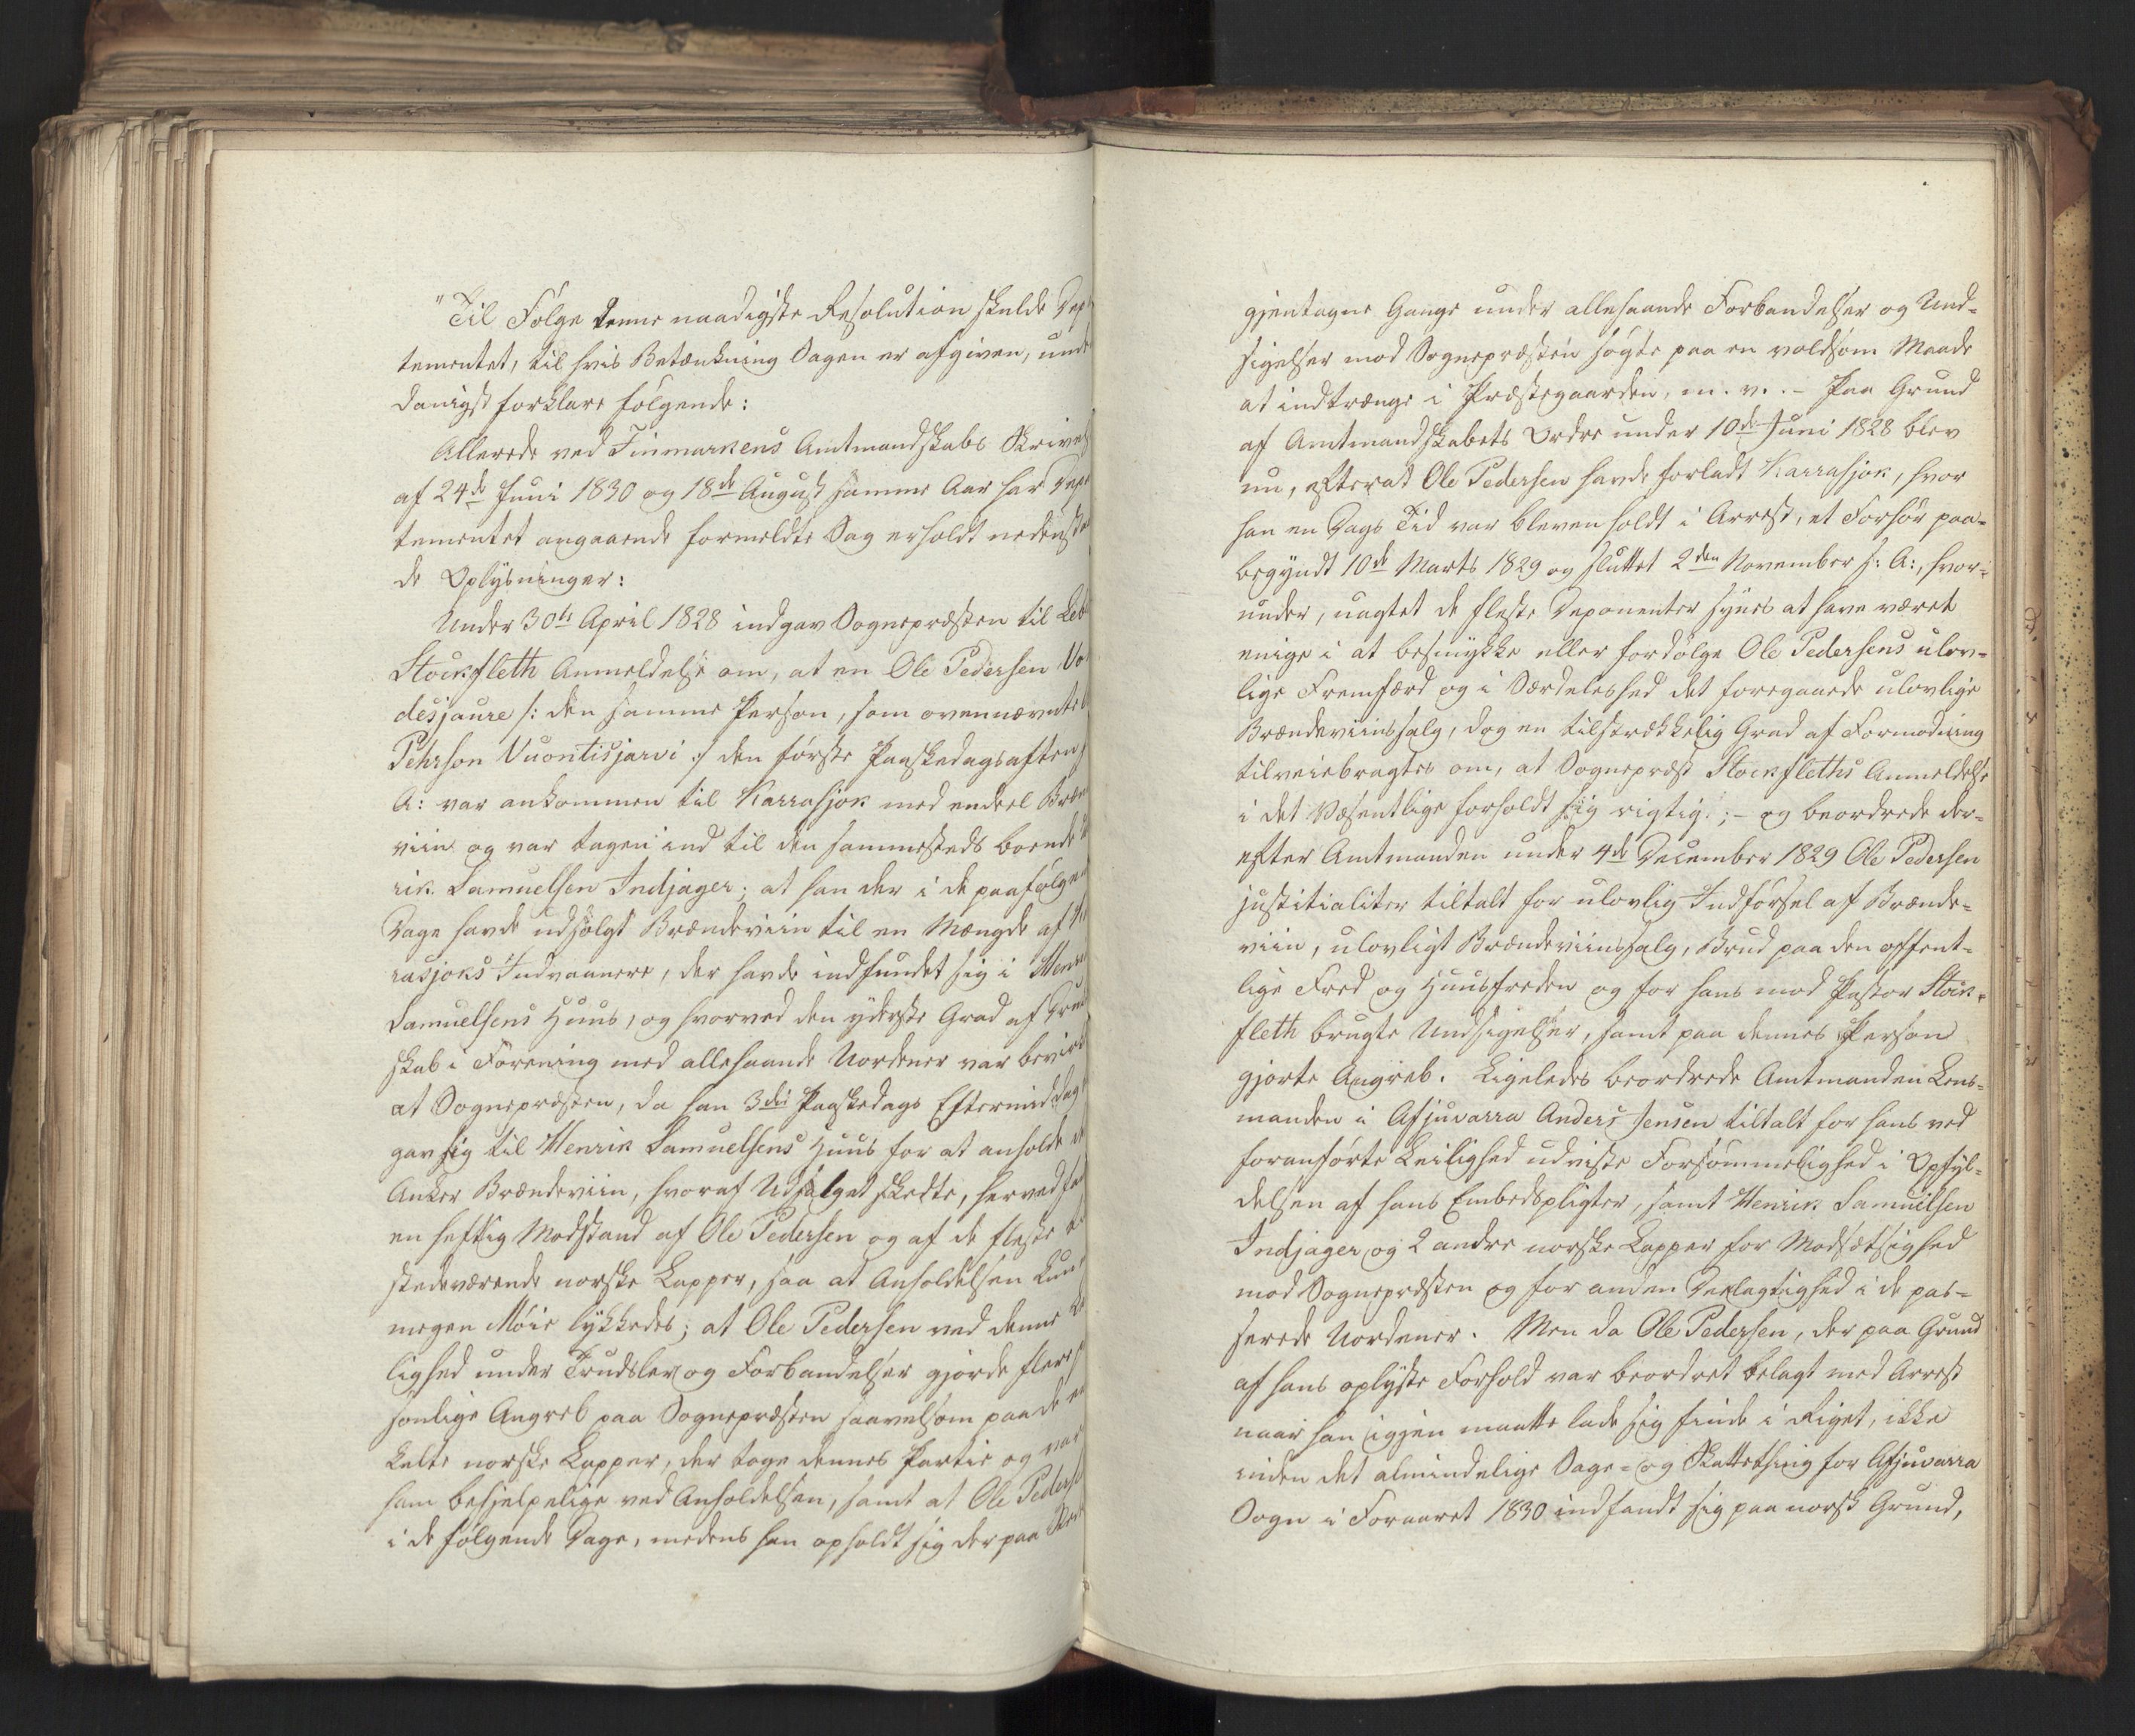 "Til Følge denne naadigste Resolution skulde Dep
tementet, til hvis Betænkning Sagen er afgiven, unde
danigst forklare følgende:
Allerede ved Finmarkens Amtmandskabs Skrivel
af 24de Juni 1830 og 18de August samme Aar har Depa
tementet angaaende formeldte Sag erholdt nedensta
de Oplysninger:
Under 30te April 1828 indgav Sognepræsten til Leb
Stockfleth Anmeldelse om, at en Ole Pedersen Vo
desjaure /: den samme Person, som ovennævnte
Pehrson Vuontisjarvi :/ den første Paaskedagsaften s
A: var ankommen til Karrasjok med endeel Bræn
viin og var tagen ind til den sammesteds boende
rik Samuelsen Indjager; at han der i de paafølgen
Dage havde udsolgt Brændeviin til en Mængde af Ka
rasjoks Indvaanere, der havde indfundet sig i Henri
Samuelsens Huus, og hvorved den yderste Grad af Druk
skab i Forening med allehaande Uordener var bevirk
at Sognepræsten, da han 3die Paaskedags Eftermiddag
gav sig til Henrik Samuelsens Huus for at anholde
Anker Brændeviin, hvoraf Udsalget skedte, herved fa
en heftig Modstand af Ole Pedersen og af de fleste
stedeværende norske Lapper, saa at Anholdelsen kun
megen Møie lykkedes; at Ole Pedersen ved denne Le
lighed under Trudsler og Forbandelser gjorde flere
sonlige Angreb paa Sognepræsten saavelsom paa de en
kelte norske Lapper, der toge dennes Partie og var
ham behjelpelige ved Anholdelsen, samt at Ole Peders
i de følgende Dage, medens han opholdt sig der paa
gjentagne Gange under allehaande Forbandelser og Und-
sigelser mod Sognepræsten søgte paa en voldsom Maade
at indtrænge i Præstegaarden, m. v. . - Paa Grund
af Amtmandskabets Ordre under 10de Juni 1828 blev
nu, efterat Ole Pedersen havde forladt Karrasjok, hvor
han en Dags Tid var bleven holdt i Arrest, et Forhør paa-
begyndt 10de Marts 1829 og sluttet 2den November s: A:, hvor-
under, uagtet de fleste Deponenter synes at have været
enige i at besmykke eller fordølge Ole Pedersens ulov-
lige Fremfærd og i Særdeleshed det foregaaede ulovlige
Brændeviinssalg, dog en tilstrækkelig Grad af Formodning
tilveiebragtes om, at Sognepræst Stockfleths Anmeldelse
i det Væsentlige forholdt sig rigtig; - og beordrede der-
efter Amtmanden under 4de December 1829 Ole Pedersen
justitialiter tiltalt for ulovlig Indførsel af Brænde-
viin, ulovligt Brændeviinssalg, Brud paa den offent-
lige Fred og Huusfreden og for hans mod Pastor Stock-
fleth brugte Undsigelser, samt paa dennes Person
gjorte Angreb. Ligeledes beordrede Amtmanden Lens-
manden i Afjuvarra Anders Jensen tiltalt for hans ved
foranførte Leilighed udviste Forsømmelighed i Opfyl-
delsen af hans Embedspligter, samt Henrik Samuelsen
Indjager og 2 andre norske Lapper for Modsætlighed
mod Sognepræsten og for anden Delagtighed i de pas-
serede Uordener. Men da Ole Pedersen, der paa Grund
af hans oplyste Forhold var beordret belagt med Arrest
naar han igjen maatte lade sig finde i Riget, ikke
inden det almindelige Sage- og Skattething for Afjuvarra
Sogn i Foraaret 1830 indfandt sig paa norsk Grund,